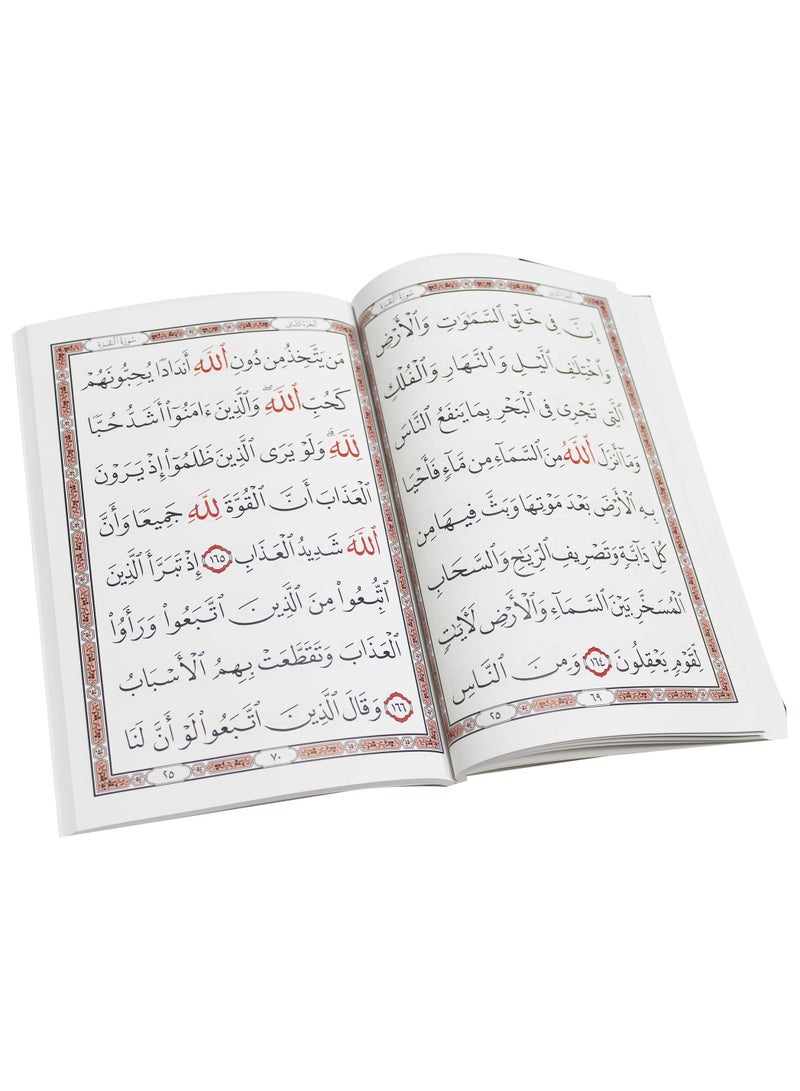 الجزء الثاني
سورة البقرة
إِنَّ فِي خَلْقِ ٱلسَّمَٰوَٰتِ وَٱلْأَرْضِ
وَٱخْتِلَٰفِ ٱلَّيْلِ وَٱلنَّهَارِ وَٱلْفُلْكِ
ٱلَّتِي تَجْرِي فِي ٱلْبَحْرِ بِمَا يَنفَعُ ٱلنَّاسَ
وَمَآ أَنزَلَ ٱللَّهُ مِنَ ٱلسَّمَآءِ مِن مَّآءٍ فَأَحْيَا
بِهِ ٱلْأَرْضَ بَعْدَ مَوْتِهَا وَبَثَّ فِيهَا مِن
كُلِّ دَآبَّةٍ وَتَصْرِيفِ ٱلرِّيَٰحِ وَٱلسَّحَابِ
ٱلْمُسَخَّرِ بَيْنَ ٱلسَّمَآءِ وَٱلْأَرْضِ لَءَايَٰتٍ
لِّقَوْمٍ يَعْقِلُونَ ١٦٤ وَمِنَ ٱلنَّاسِ
٦٩
٢٥
الجزء الثاني
سورة البقرة
مَن يَتَّخِذُ مِن دُونِ ٱللَّهِ أَندَادًا يُحِبُّونَهُمْ
كَحُبِّ ٱللَّهِ ۖ وَٱلَّذِينَ ءَامَنُوٓا۟ أَشَدُّ حُبًّا
لِّلَّهِ ۗ وَلَوْ يَرَى ٱلَّذِينَ ظَلَمُوٓا۟ إِذْ يَرَوْنَ
ٱلْعَذَابَ أَنَّ ٱلْقُوَّةَ لِلَّهِ جَمِيعًا وَأَنَّ
ٱللَّهَ شَدِيدُ ٱلْعَذَابِ ١٦٥ إِذْ تَبَرَّأَ ٱلَّذِينَ
ٱتُّبِعُوا۟ مِنَ ٱلَّذِينَ ٱتَّبَعُوا۟ وَرَأَوُا۟
ٱلْعَذَابَ وَتَقَطَّعَتْ بِهِمُ ٱلْأَسْبَابُ
١٦٦ وَقَالَ ٱلَّذِينَ ٱتَّبَعُوا۟ لَوْ أَنَّ لَنَا
٧٠
٢٥